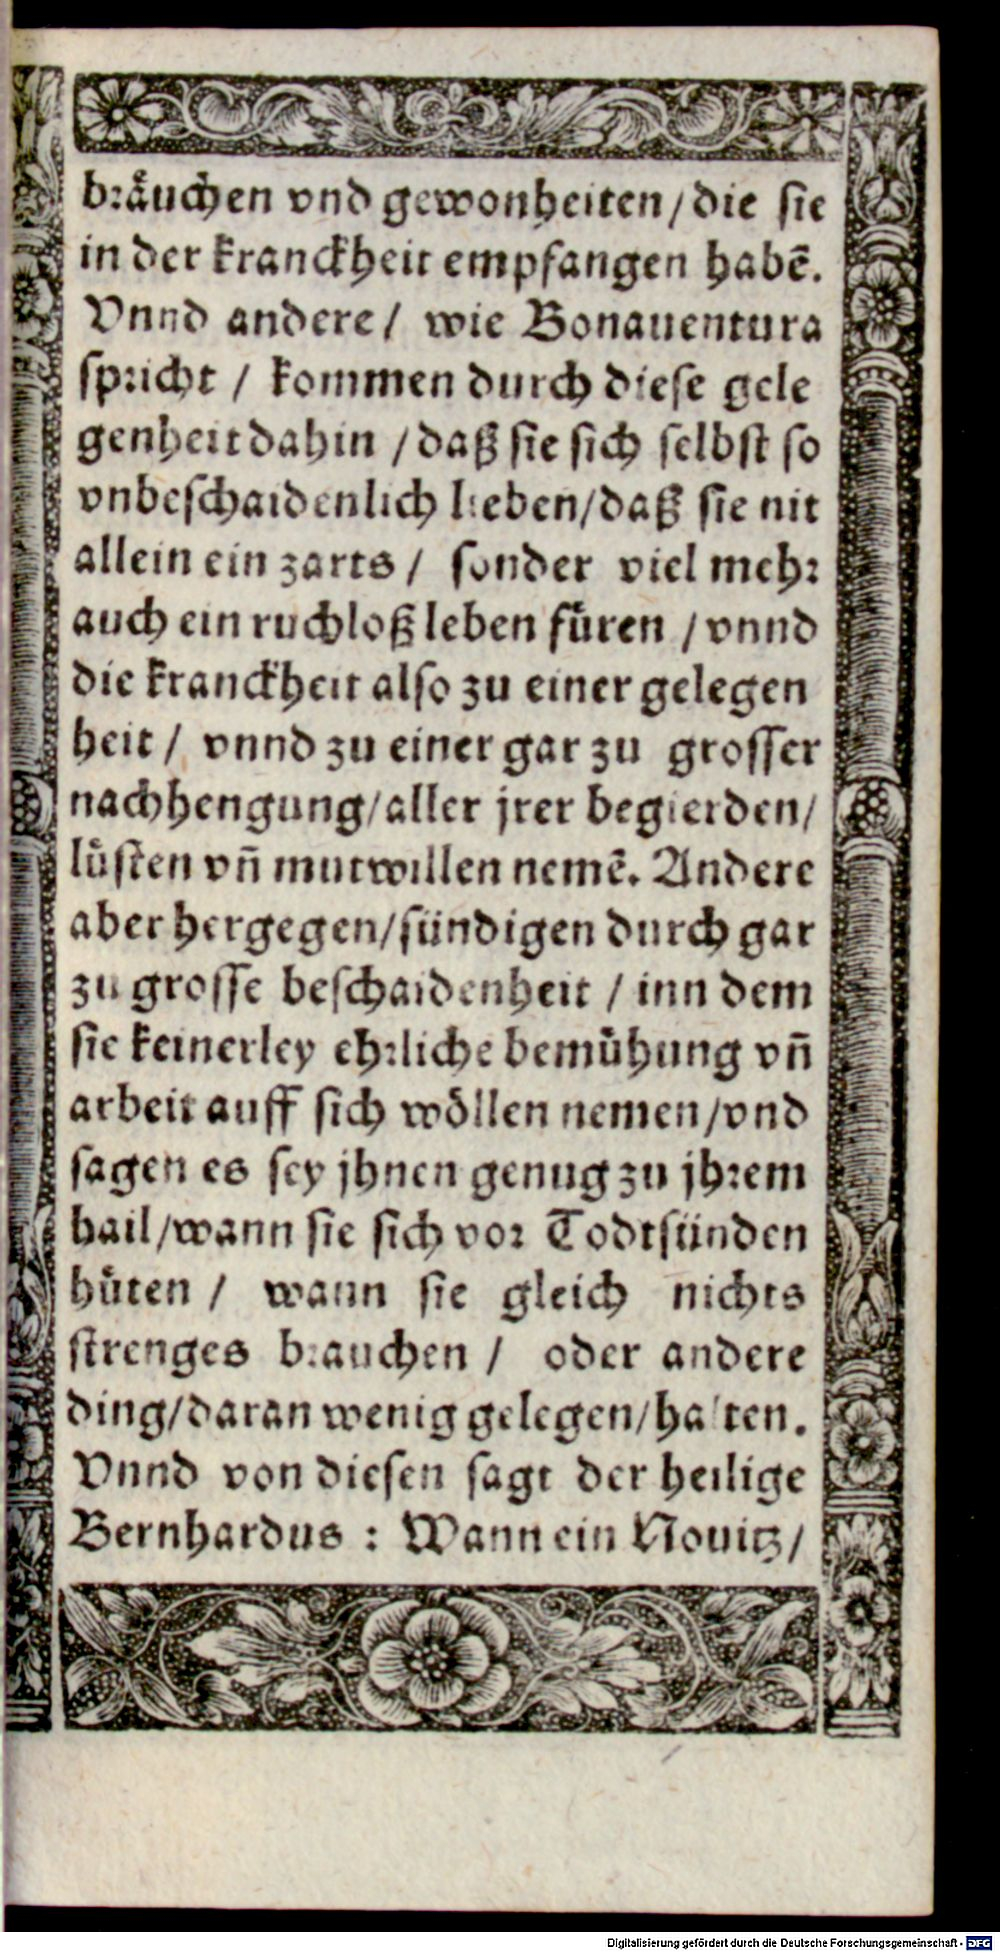 bräuchen vnd gewonheiten/die sie
in der kranckheit empfangen habē.
Vnnd andere/ wie Bonauentura
spricht / kommen durch diese gele
genheit dahin /daß sie sich selbst so
vnbeschaidenlich lieben/daß sie nit
allein ein zarts/ sonder viel mehr
auch ein ruchloß leben füren /vnnd
die kranckheit also zu einer gelegen
heit/ vnnd zu einer gar zu grosser
nachhengung/aller jrer begierden/
lüsten vñ mutwillen nemē. Andere
aber hergegen/sündigen durch gar
zu grosse beschaidenheit / inn dem
sie keinerley ehrliche bemühung vñ
arbeit auff sich wöllen nemen/vnd
sagen es sey jhnen genug zu jhrem
hail/wann sie sich vor Todtsünden
hüten / wann sie gleich nichts
strenges brauchen / oder andere
ding/daran wenig gelegen/halten.
Vnnd von diesen sagt der heilige
Bernhardus : Wann ein Nouitz/
Digitalisierung gefördert durch die Deutsche Forschungsgemeinschaft - DFG